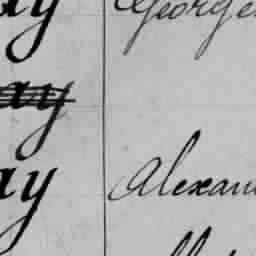 ay George
ay
ay Alexan